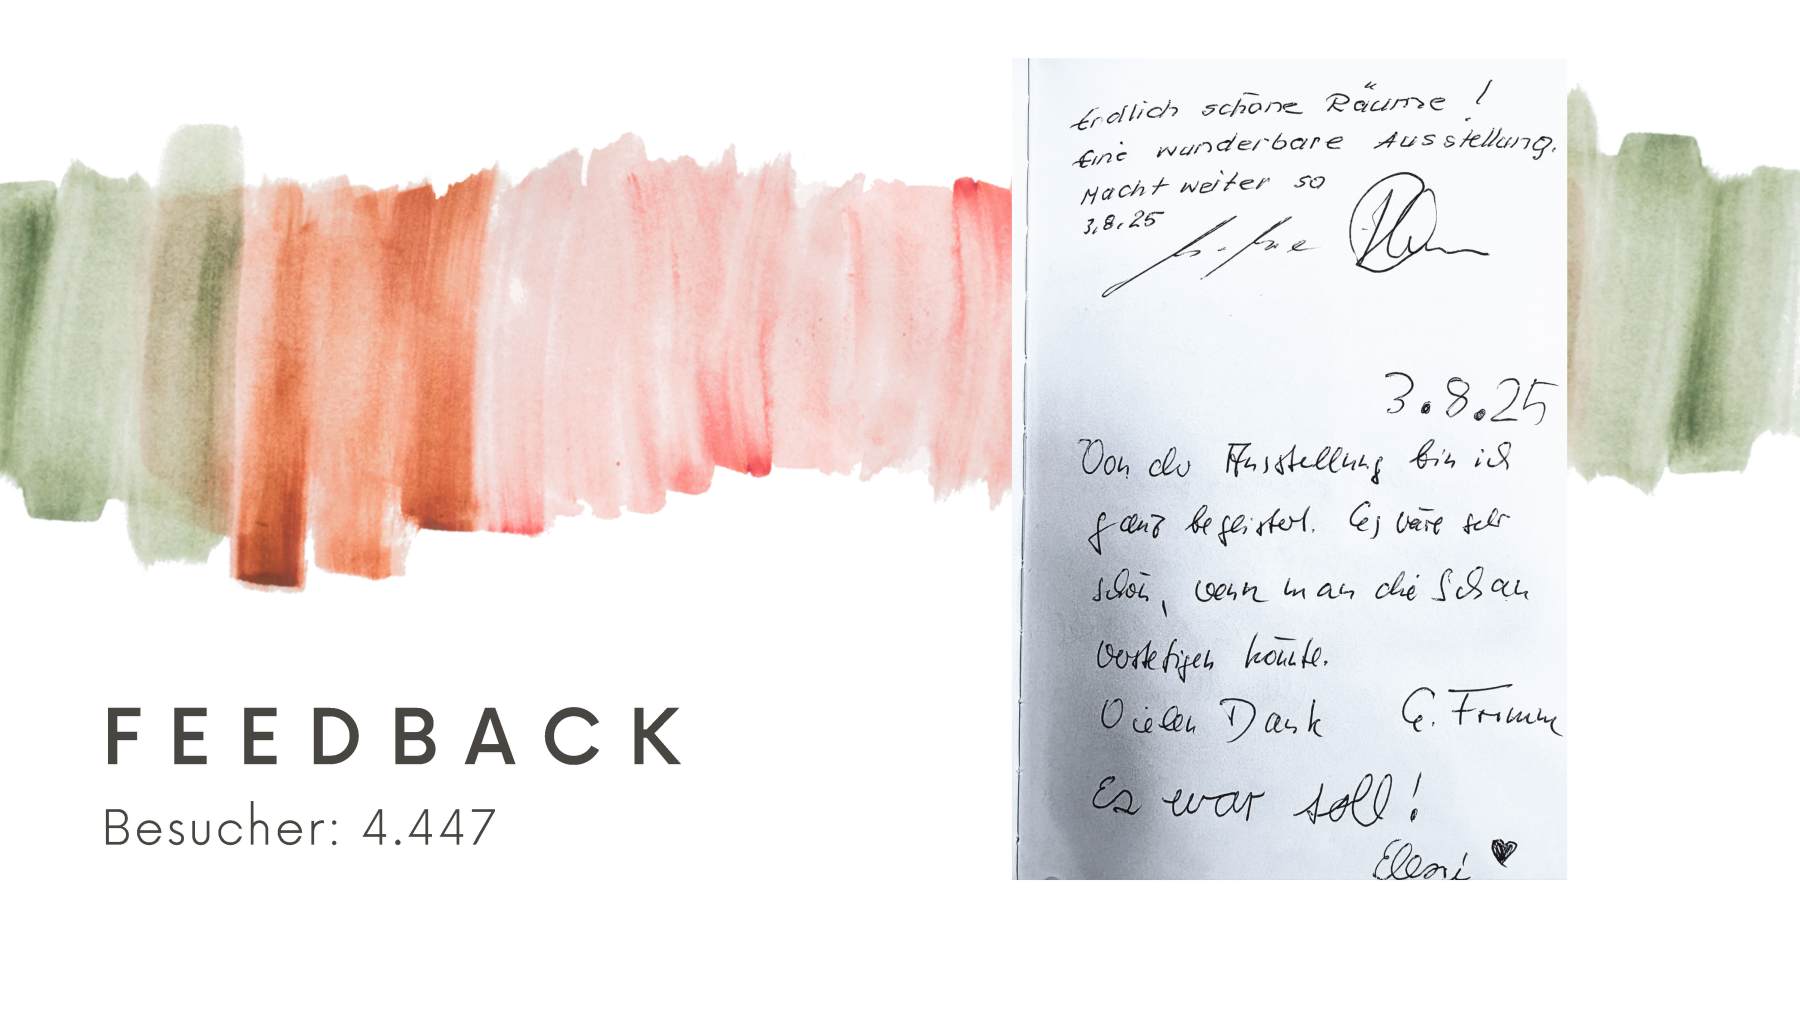 FEEDBACK
Besucher: 4.447
Endlich schöne Räume!
Eine wunderbare Ausstellung.
Macht weiter so
3.8.25
3.8.25
Von der Ausstellung bin ich
ganz begeistert. Es wäre sehr
schön, wenn man die Schau
verstetigen könnte.
Vielen Dank G. Fromm
Es war toll!
Eleni